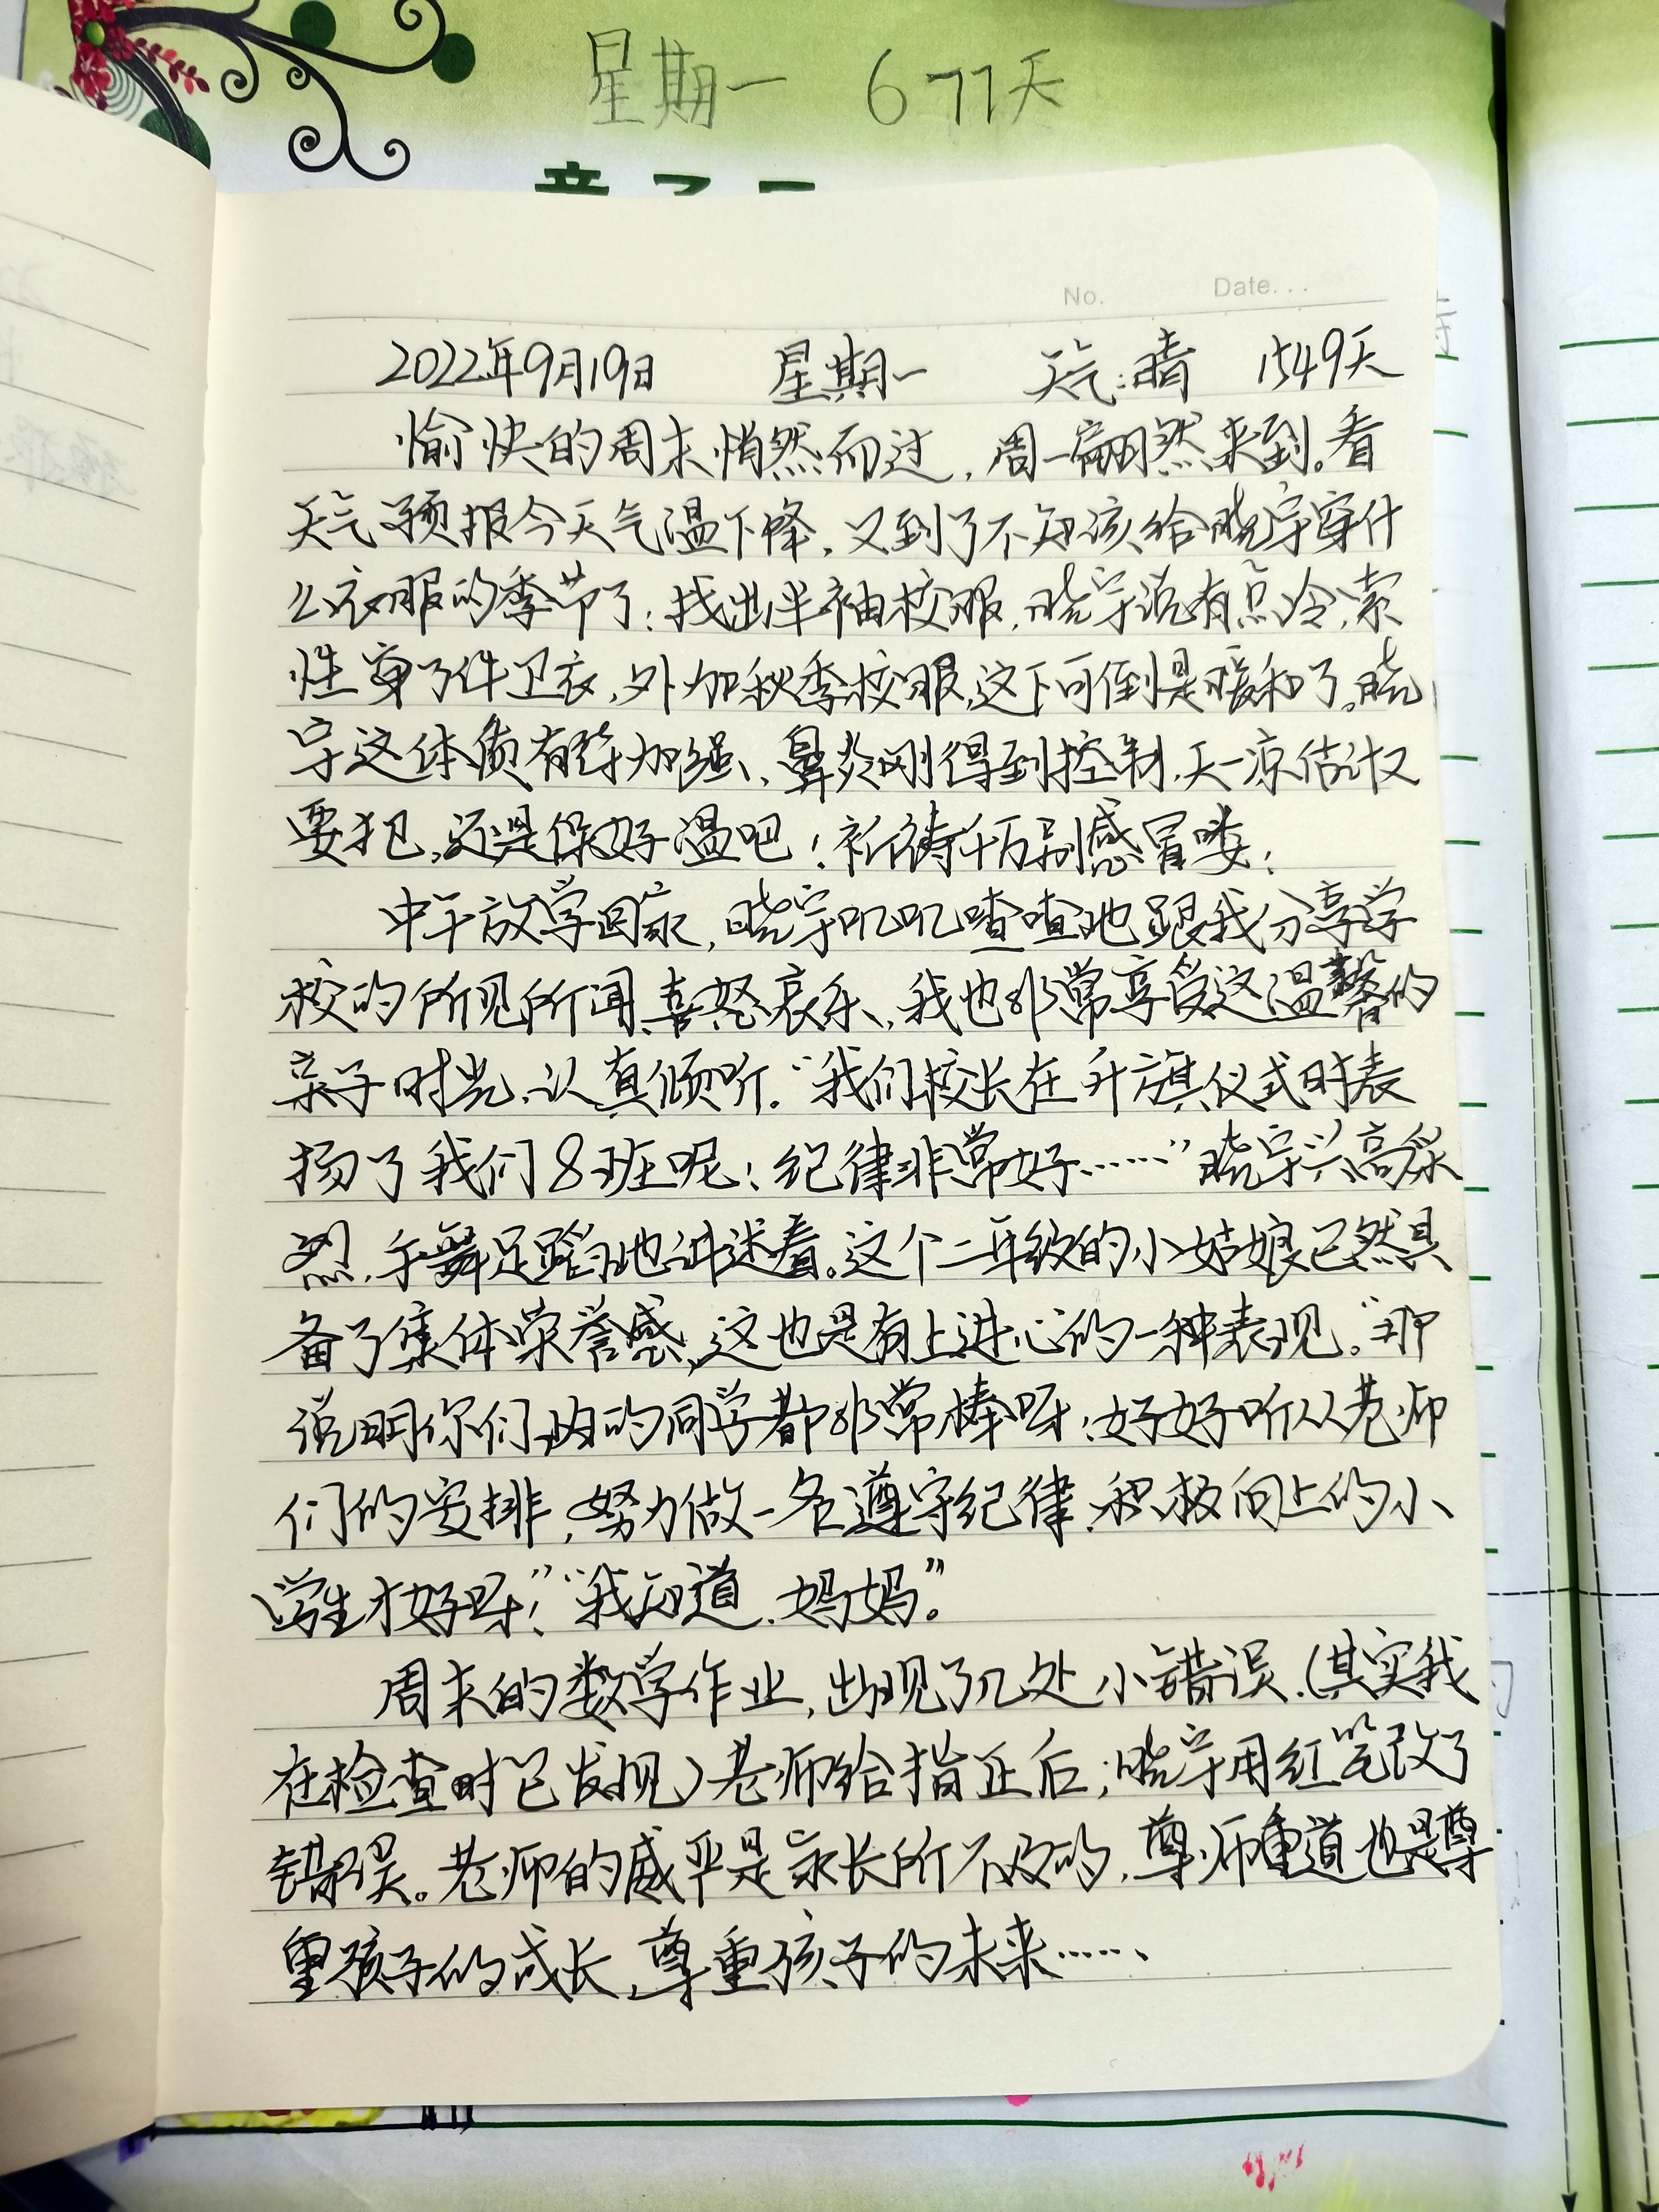 星期一 677天
No. Date...
2022年9月19日 星期一 天气:晴 1549天
愉快的周末悄然而过，周一翩然来到。看
天气预报今天气温下降，又到了不知该给晓宇穿什
么衣服的季节了！找出半袖校服，晓宇说有点冷，索
性穿了件卫衣，外加秋季校服，这下可倒是暖和了。晓
宇这体质有待加强，鼻炎刚得到控制，天一凉估计又
要犯，还是保好温吧！祈祷千万别感冒喽！
中午放学回家，晓宇叽叽喳喳地跟我分享学
校的所见所闻、喜怒哀乐，我也非常享受这温馨的
亲子时光，认真倾听。“我们校长在升旗仪式时表
扬了我们8班呢！纪律非常好……”晓宇兴高采
烈，手舞足蹈地讲述着。这个二年级的小姑娘已然具
备了集体荣誉感，这也是有上进心的一种表现。“那
说明你们班的同学都非常棒呀！好好听从老师
们的安排，努力做一名遵守纪律、积极向上的小
学生才好呀！”“我知道，妈妈。”
周末的数学作业，出现了几处小错误，（其实我
在检查时已发现）老师给指正后，晓宇用红笔改了
错误。老师的威严是家长所不及的，尊师重道也是尊
重孩子的成长，尊重孩子的未来……